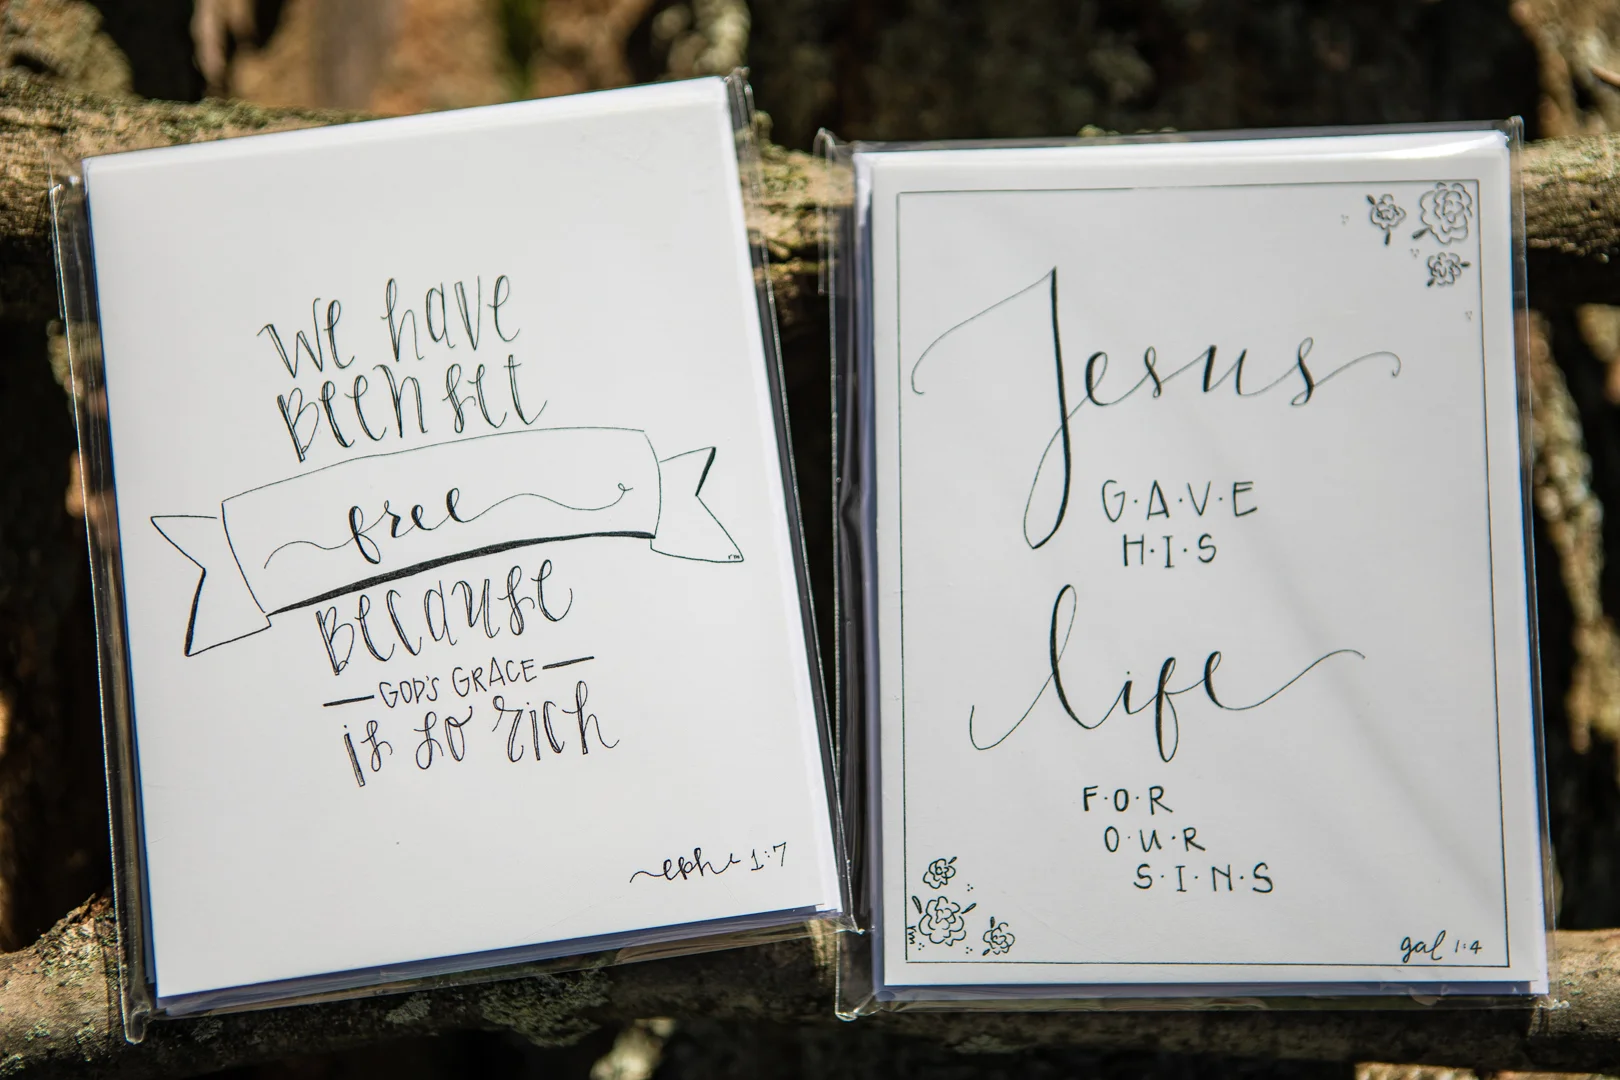 we have
Been set
free
rm
Because
GOD'S GRACE
is so rich
eph 1:7
Jesus
G·A·V·E
H·I·S
life
F·O·R
O·U·R
S·I·N·S
rm
gal 1:4